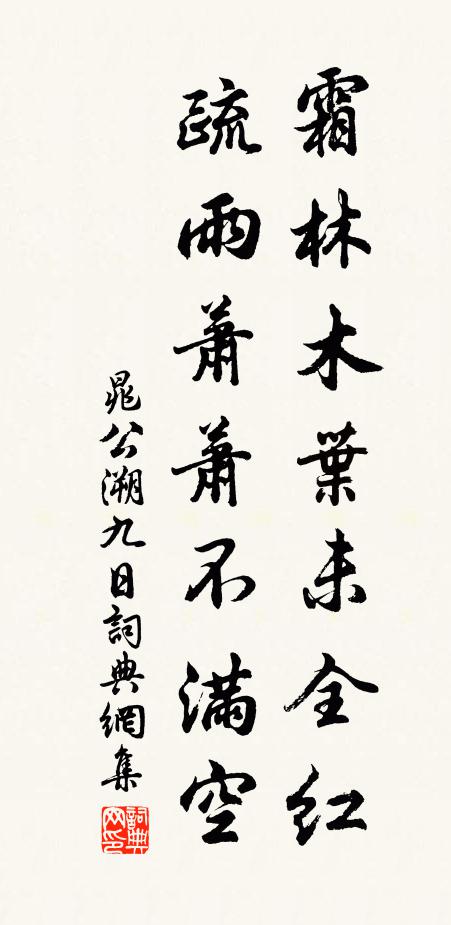 霜林木葉未全紅
疏雨蕭蕭不滿空
晁公溯九日詞典網集
詞典网印